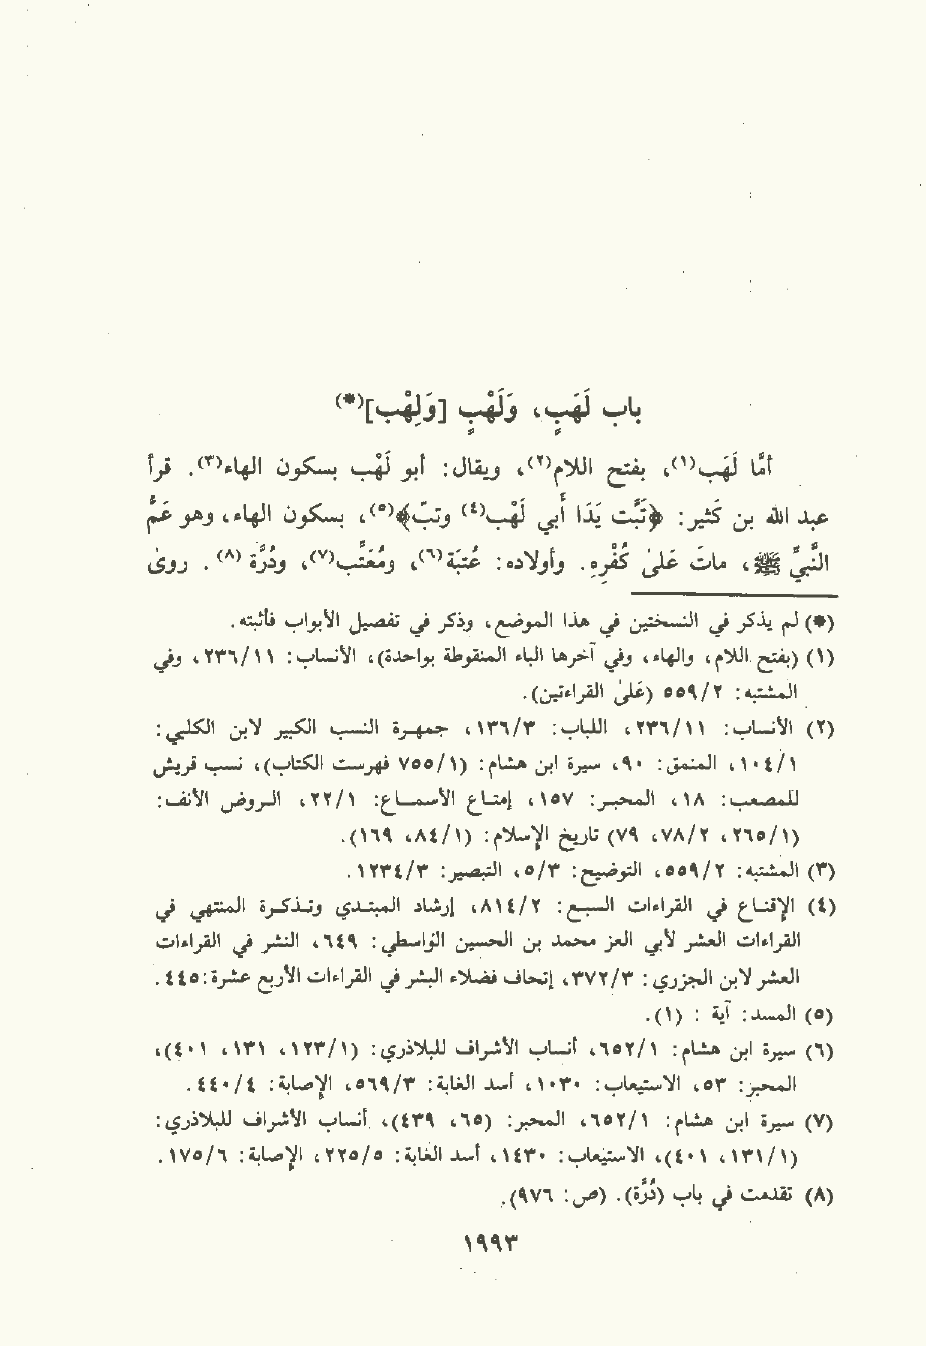 باب لَهَبٍ، وَلَهْبٍ [وَلِهْب](*)
أمَّا لَهَب(١)، بفتح اللام(٢)، ويقال: أبو لَهْب بسكون الهاء(٣). قرأ
عبد الله بن كَثير: ﴿تَبَّت يَدَا أبي لَهْب(٤) وتبّ﴾(٥)، بسكون الهاء، وهو عَمُّ
النَّبيِّ ﷺ، ماتَ عَلىٰ كُفْرِهِ. وأولاده: عُتبَة(٦)، ومُعَتِّب(٧)، ودُرَّة(٨). روىٰ
(*) لم يذكر في النسختين في هذا الموضع، وذكر في تفصيل الأبواب فأثبته.
(١) (بفتح اللام، والهاء، وفي آخرها الباء المنقوطة بواحدة)، الأنساب: ٢٣٦/١١، وفي
المشتبه: ٥٥٩/٢ (عَلىٰ القراءتين).
(٢) الأنساب: ٢٣٦/١١، اللباب: ١٣٦/٣، جمهرة النسب الكبير لابن الكلبي:
١٠٤/١، المنمق: ٩٠، سيرة ابن هشام: (٧٥٥/١ فهرست الكتاب)، نسب قريش
للمصعب: ١٨، المحبر: ١٥٧، إمتاع الأسماع: ٢٢/١، الروض الأنف:
(٢٦٥/١، ٧٨/٢، ٧٩) تاريخ الإسلام: (٨٤/١، ١٦٩).
(٣) المشتبه: ٥٥٩/٢، التوضيح: ٥/٣، التبصير: ١٢٣٤/٣.
(٤) الإقناع في القراءات السبع: ٨١٤/٢، إرشاد المبتدي وتذكرة المنتهي في
القراءات العشر لأبي العز محمد بن الحسين الواسطي: ٦٤٩، النشر في القراءات
العشر لابن الجزري: ٣٧٢/٣، إتحاف فضلاء البشر في القراءات الأربع عشرة: ٤٤٥.
(٥) المسد: آية : (١).
(٦) سيرة ابن هشام: ٦٥٢/١، أنساب الأشراف للبلاذري: (١٢٣/١، ١٣١، ٤٠١)،
المحبر: ٥٣، الاستيعاب: ١٠٣٠، أسد الغابة: ٥٦٩/٣، الإصابة: ٤٤٠/٤.
(٧) سيرة ابن هشام: ٦٥٢/١، المحبر: (٦٥، ٤٣٩)، أنساب الأشراف للبلاذري:
(١٣١/١، ٤٠١)، الاستيعاب: ١٤٣٠، أسد الغابة: ٢٢٥/٥، الإصابة: ١٧٥/٦.
(٨) تقدمت في باب (دُرَّة). (ص: ٩٧٦).
١٩٩٣